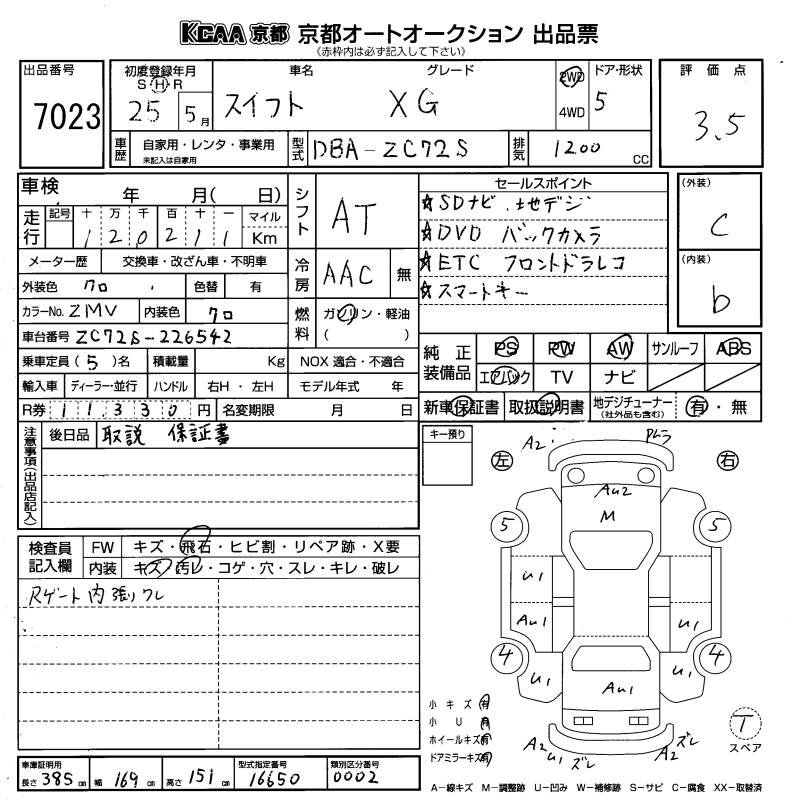 KCAA 京都 京都オートオークション 出品票
《赤枠内は必ず記入して下さい》
出品番号 7023
初度登録年月 S H R 25 5月
車名 スイフト
グレード XG
2WD 4WD
ドア・形状 5
評価点 3.5
車歴 自家用・レンタ・事業用 未記入は自家用
型式 DBA-ZC72S
排気 1200 CC
車検 年 月( 日)
シフト AT
セールスポイント
☆SDナビ.地デジ
☆DVD バックカメラ
☆ETC フロントドラレコ
☆スマートキー
(外装) C
(内装) b
走行 記号 十 万 千 百 十 一 マイル Km
120211
メーター歴 交換車・改ざん車・不明車
冷房 AAC 無
外装色 クロ 色替 有
カラーNo. ZMV 内装色 クロ
燃料 ガソリン・軽油 ( )
車台番号 ZC72S-226542
乗車定員(5)名 積載量 Kg NOX 適合・不適合
輸入車 ディーラー・並行 ハンドル 右H・左H モデル年式 年
R券 11330円 名変期限 月 日
純正装備品 PS PW AW サンルーフ ABS
エアバック TV ナビ
新車保証書 取扱説明書 地デジチューナー (社外品も含む) 有・無
注意事項(出品店記入)
後日品 取説 保証書
キー預り
左 右
A2 Pムラ
AU2
M
5 5
U1
AU1 U1
4 4
U1 U1
AU1
A2 U1 ズレ A2 ズレ
T
スペア
検査員記入欄
FW キズ・飛石・ヒビ割・リペア跡・X要
内装 キズ・汚レ・コゲ・穴・スレ・キレ・破レ
Rゲート内張りワレ
小キズ 有
小U 有
ホイールキズ 有
ドアミラーキズ 有
車庫証明用 長さ 385cm 幅 169cm 高さ 151cm
型式指定番号 16650
類別区分番号 0002
A-線キズ M-調整跡 U-凹み W-補修跡 S-サビ C-腐食 XX-取替済